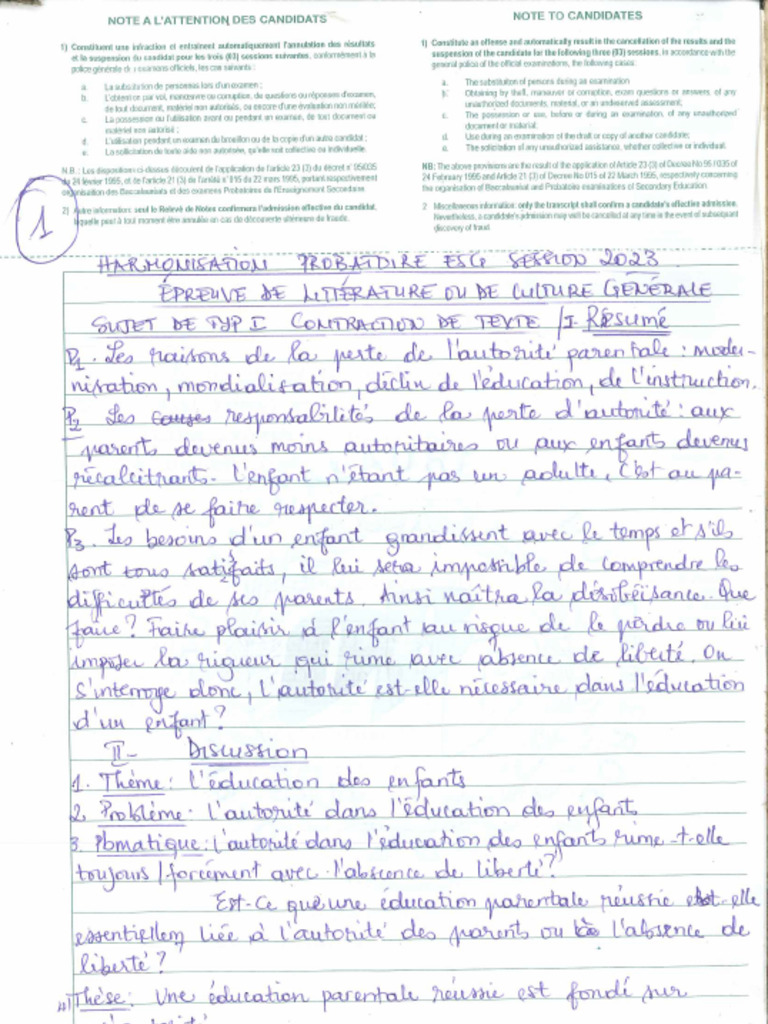 NOTE A L'ATTENTION DES CANDIDATS
1) Constituent une infraction et entraînent automatiquement l'annulation des résultats
et la suspension du candidat pour les trois (03) sessions suivantes, conformément à la
police générale des examens officiels, les cas suivants :
a. La substitution de personnes lors d'un examen ;
b. L'obtention par vol, manœuvre ou corruption, de questions ou réponses d'examen,
de tout document, matériel non autorisés, ou encore d'une évaluation non méritée;
c. La possession ou l'utilisation avant ou pendant un examen, de tout document ou
matériel non autorisé ;
d. L'utilisation pendant un examen du brouillon ou de la copie d'un autre candidat ;
e. La sollicitation de toute aide non autorisée, qu'elle soit collective ou individuelle.
N.B. : Les dispositions ci-dessus découlent de l'application de l'article 23 (3) du décret n° 95/035
du 24 février 1995, et de l'article 21 (3) de l'arrêté n° 015 du 22 mars 1995, portant respectivement
organisation des Baccalauréats et des examens Probatoires de l'Enseignement Secondaire.
2) Autre information: seul le Relevé de Notes confirmera l'admission effective du candidat,
laquelle peut à tout moment être annulée en cas de découverte ultérieure de fraude.
NOTE TO CANDIDATES
1) Constitute an offense and automatically result in the cancellation of the results and the
suspension of the candidate for the following three (03) sessions, in accordance with the
general police of the official examinations, the following cases:
a. The substitution of persons during an examination
b. Obtaining by theft, maneuver or corruption, exam questions or answers, of any
unauthorized documents, material, or an undeserved assessment;
c. The possession or use, before or during an examination, of any unauthorized
document or material;
d. Use during an examination of the draft or copy of another candidate;
e. The solicitation of any unauthorized assistance, whether collective or individual.
NB: The above provisions are the result of the application of Article 23 (3) of Decree No 95 /035 of
24 February 1995 and Article 21 (3) of Decree No 015 of 22 March 1995, respectively concerning
the organisation of Baccalauréat and Probatoire examinations of Secondary Education.
2 Miscellaneous information: only the transcript shall confirm a candidate's effective admission.
Nevertheless, a candidate's admission may well be cancelled at any time in the event of subsequent
discovery of fraud.
1
HARMONISATION PROBATOIRE ESG SESSION 2023
ÉPREUVE DE LITTÉRATURE OU DE CULTURE GÉNÉRALE
SUJET DE TYP I CONTRACTION DE TEXTE / I. Résumé
P1. Les raisons de la perte de l'autorité parentale : moder-
nisation, mondialisation, déclin de l'éducation, de l'instruction.
P2 Les causes responsabilités de la perte d'autorité : aux
parents devenus moins autoritaires ou aux enfants devenus
récalcitrants. l'enfant n'étant pas un adulte, c'est au pa-
rent de se faire respecter.
P3. Les besoins d'un enfant grandissent avec le temps et s'ils
sont tous satisfaits, il lui sera impossible de comprendre les
difficultés de ses parents. Ainsi naîtra la désobéisance. Que
faire? Faire plaisir à l'enfant au risque de le perdre ou lui
imposer la rigueur qui rime avec absence de liberté. On
s'interroge donc, l'autorité est-elle nécessaire dans l'éducation
d'un enfant?
II- Discussion
1. Thème : l'éducation des enfants
2. Problème : l'autorité dans l'éducation des enfants
3. Pbmatique : l'autorité dans l'éducation des enfants rime-t-elle
toujours / forcément avec l'abscence de liberté?"
Est-ce que une éducation parentale réussie est-elle
essentiellem liée à l'autorité des parents ou à l'absence de
liberté?
4) Thèse : Une éducation parentale réussie est fondé sur
l'autorité